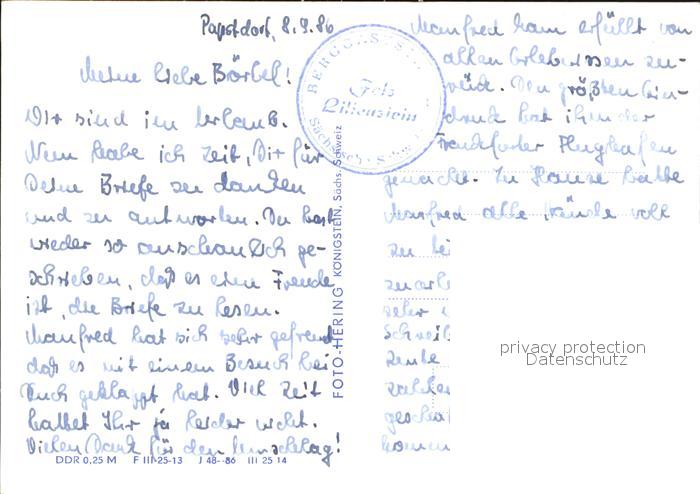 Papstdorf, 8.9.86
Meine liebe Bärbel!
Wir sind im Urlaub.
Nun habe ich Zeit, Dir für
Deine Briefe zu danken
und zu antworten. Du hast
wieder so anschaulich ge-
schrieben, daß es eine Freude
ist, die Briefe zu lesen.
Manfred hat sich sehr gefreut
daß es mit einem Besuch bei
Euch geklappt hat. Viel Zeit
hattet Ihr ja leider nicht.
Vielen Dank für den Umschlag!
DDR 0,25 M F III-25-13 J 48--86 III 25 14
FOTO-HERING KÖNIGSTEIN, Sächs. Schweiz
BERGGASTST
Fels
Lilienstein
Sächsisch Schw
Manfred kam erfüllt von
allen Erlebnissen zu-
rück. Den größten Ein-
druck hat ihm der
Frankfurter Flughafen
gemacht. Zu Hause hatte
Manfred alle Hände voll
zu
sehr
Schreib
zahl
gesch
komm
privacy protection
Datenschutz